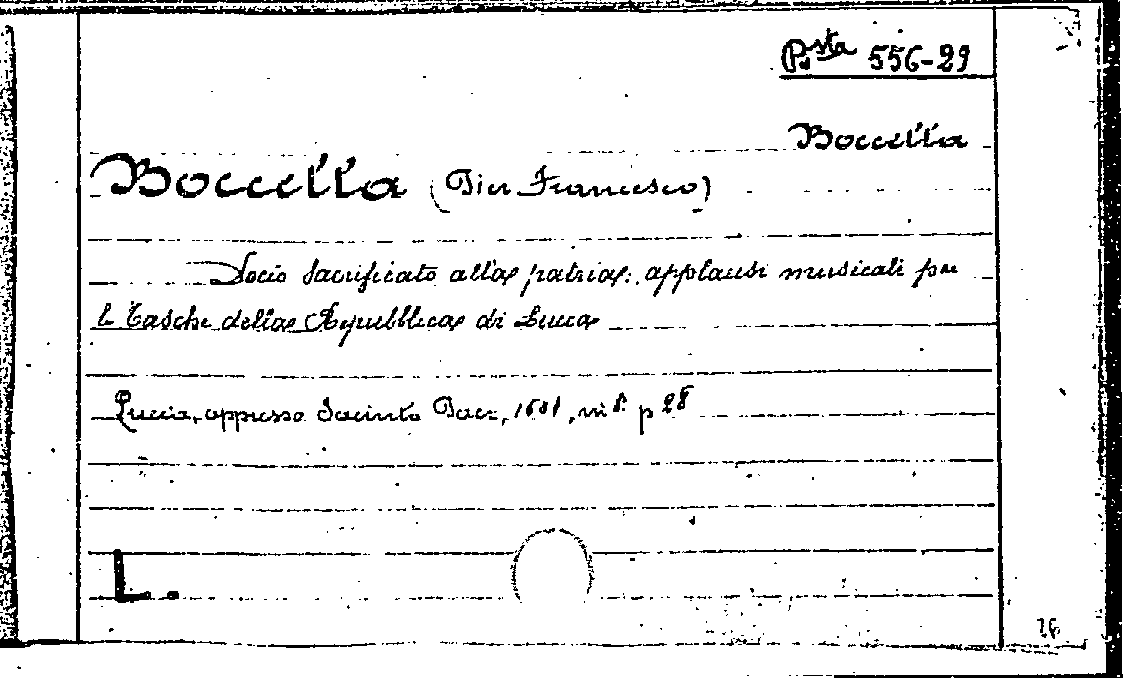 Bsta 556-29
Boccella
Boccella (Pier Francesco)
Socio sacrificato alla patria: applausi musicali per
le Tasche della Repubblica di Lucca
Lucca, appresso Jacinto Paci, in 8° p 28
L.